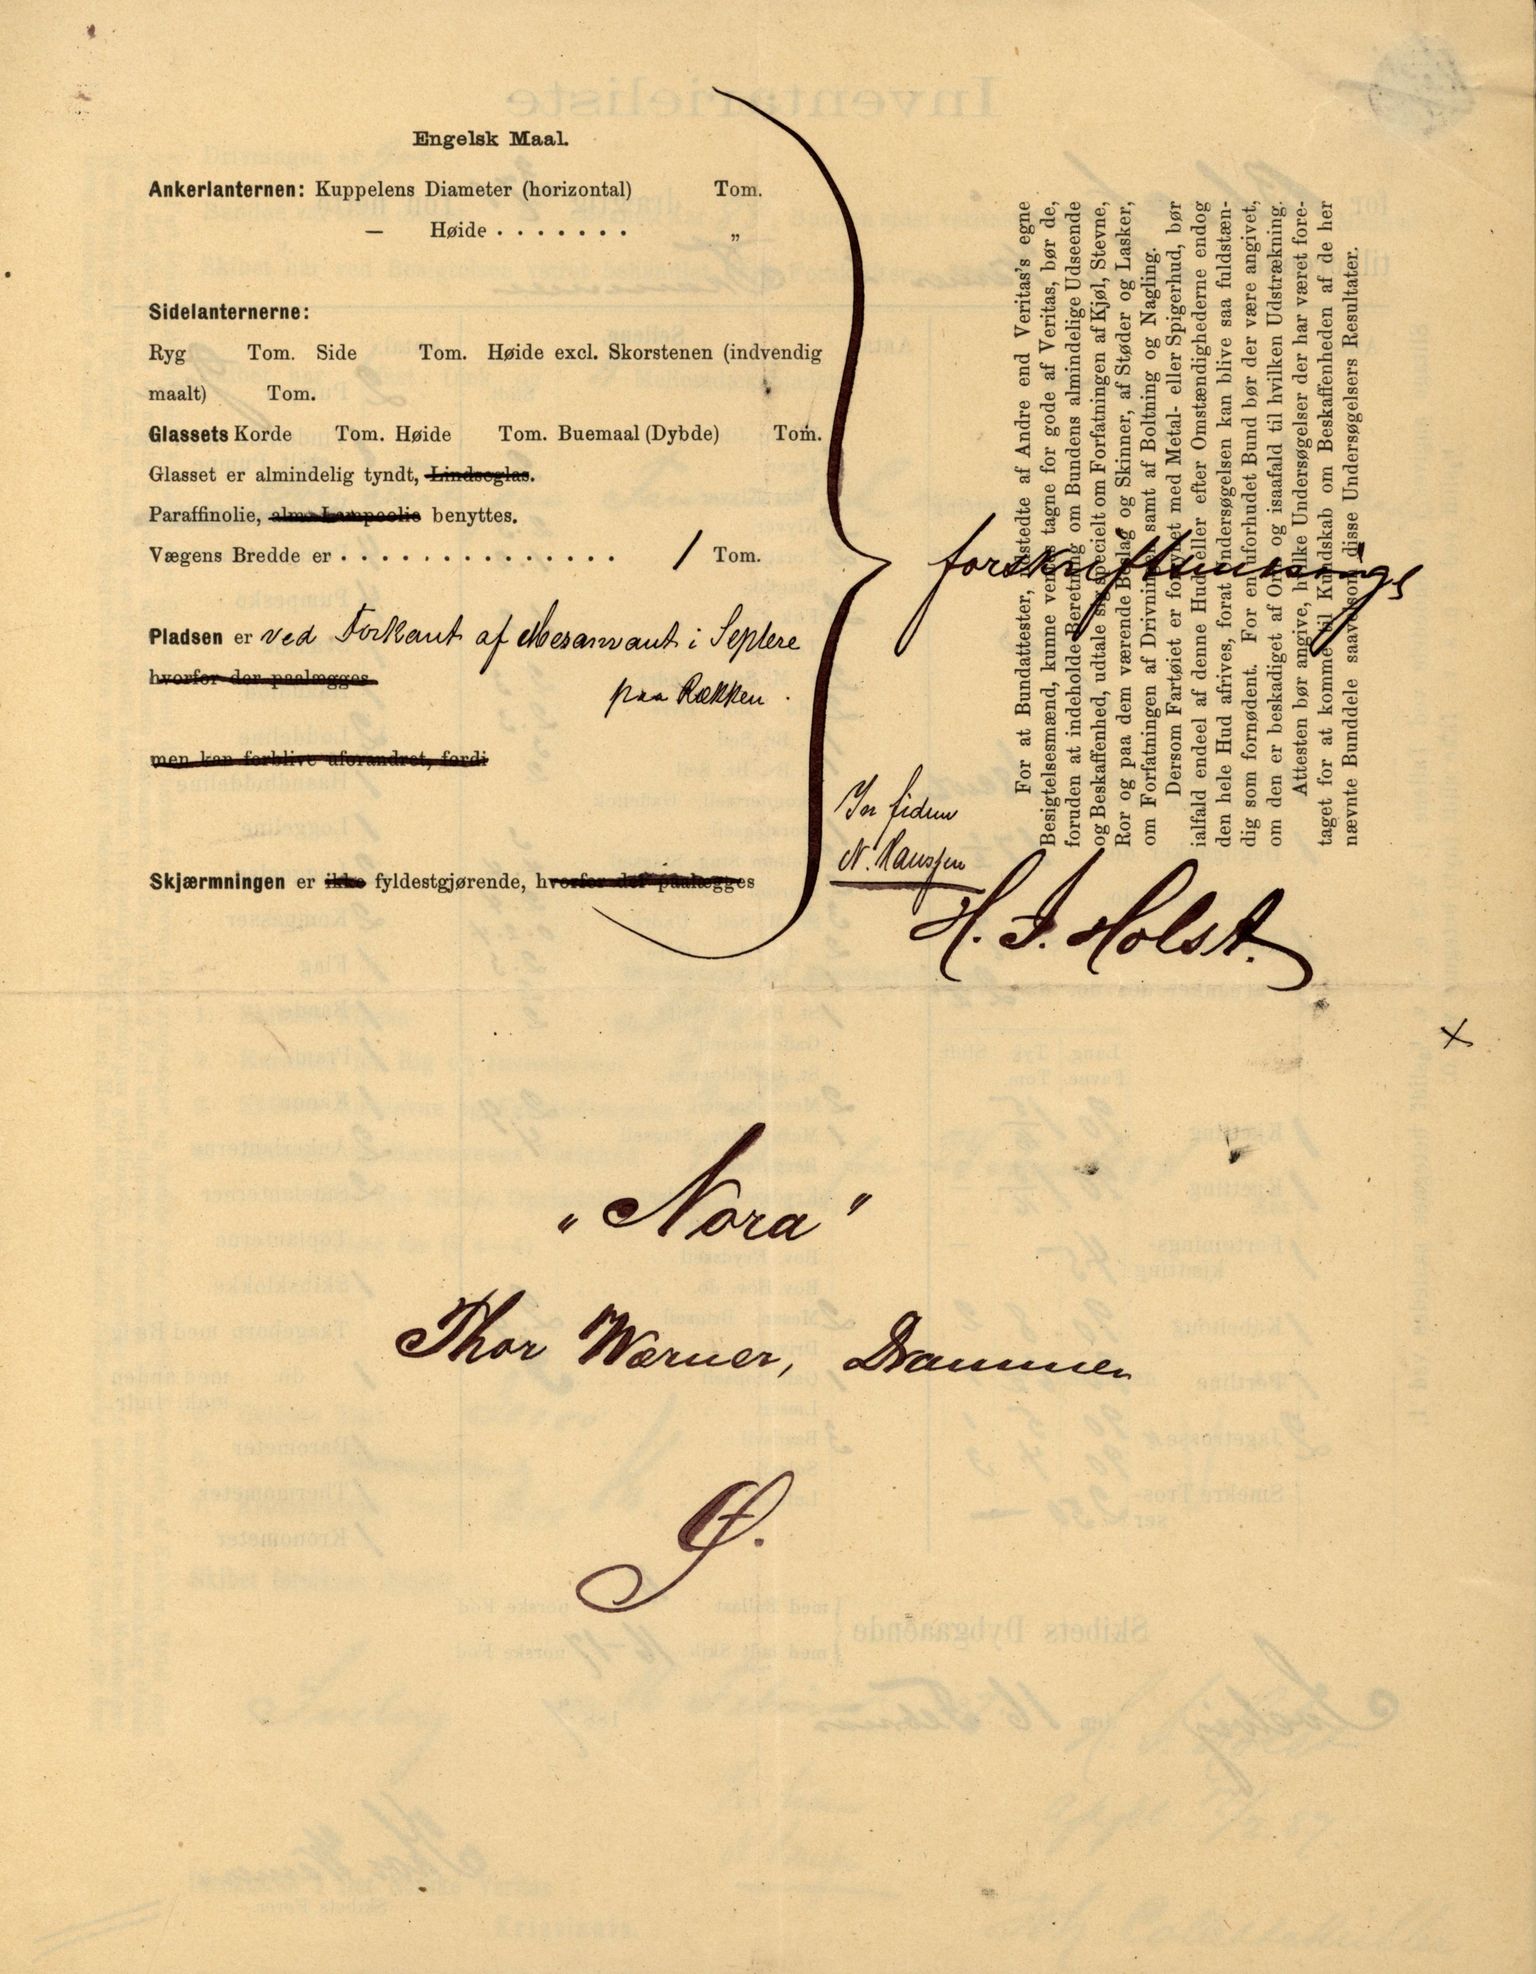 Engelsk Maal.
Ankerlanternen: Kuppelens Diameter (horizontal) Tom.
— Høide . . . . . . . „
Sidelanternerne:
Ryg Tom. Side Tom. Høide excl. Skorstenen (indvendig
maalt) Tom.
Glassets Korde Tom. Høide Tom. Buemaal (Dybde) Tom.
Glasset er almindelig tyndt, Lindseglas.
Paraffinolie, alm. Lampeolie benyttes.
Vægens Bredde er . . . . . . . . . . . . . . 1 Tom.
Pladsen er ved Forkant af Mesanvant i Septere
hvorfor der paalægges
paa Rækken.
men kan forblive uforandret, fordi
Skjærmningen er ikke fyldestgjørende, hvorfor der paalægges
In fidem
N. Hanssen
H. J. Holst.
For at Bundattester, udstedte af Andre end Veritas's egne
Besigtelsesmænd, kunne ventes tagne for gode af Veritas, bør de,
foruden at indeholde Beretning om Bundens almindelige Udseende
og Beskaffenhed, udtale sig specielt om Forfatningen af Kjøl, Stevne,
Ror og paa dem værende Beslag og Skinner, af Støder og Lasker,
om Forfatningen af Drivningen samt af Boltning og Nagling.
Dersom Fartøiet er forsynet med Metal- eller Spigerhud, bør
ialfald endeel af denne Hud eller efter Omstændighederne endog
den hele Hud afrives, forat Undersøgelsen kan blive saa fuldstæn-
dig som fornødent. For en uforhudet Bund bør der være angivet,
om den er beskadiget af Orm og isaafald til hvilken Udstrækning.
Attesten bør angive, hvilke Undersøgelser der har været fore-
taget for at komme til Kundskab om Beskaffenheden af de her
nævnte Bunddele saavelsom disse Undersøgelsers Resultater.
„Nora"
Thor Werner, Drammen